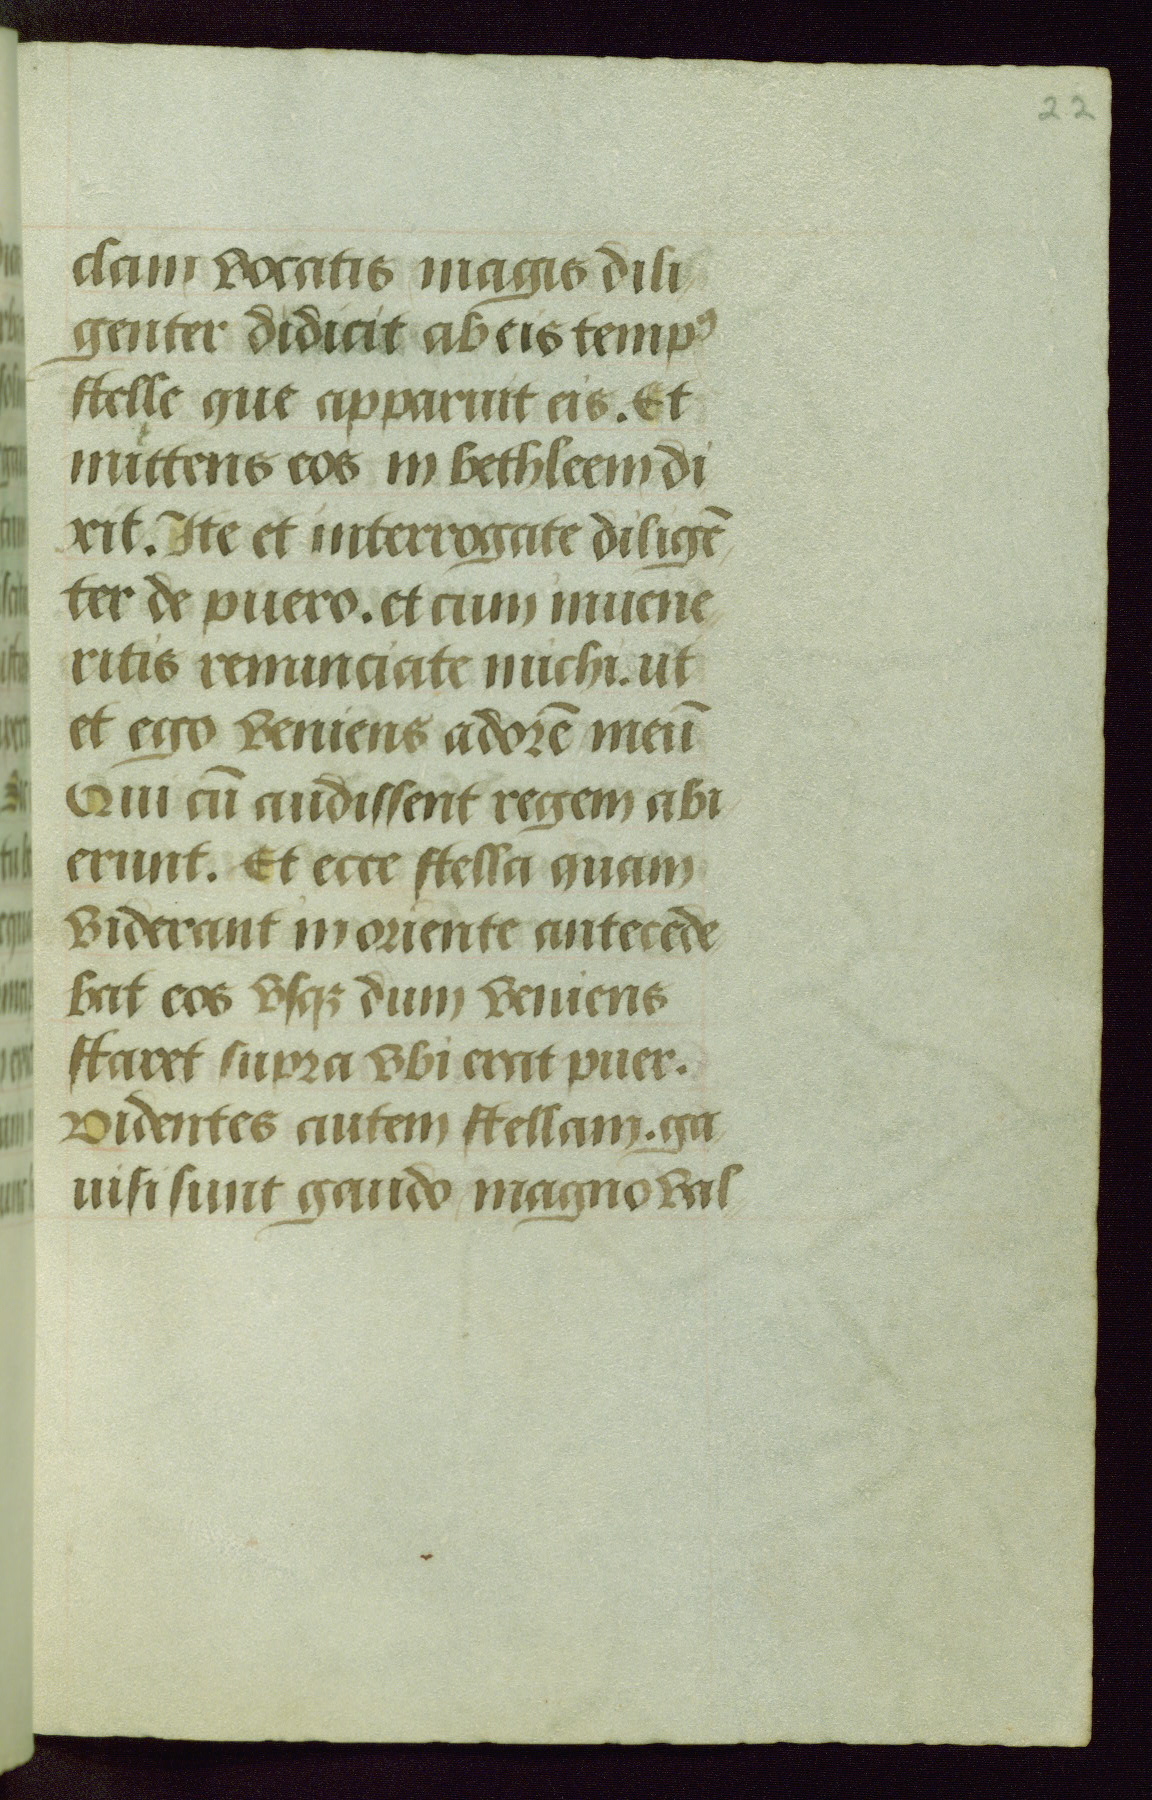 22
clam vocatis magis dili
genter didicit ab eis tempꝰ
stelle que apparuit eis. Et
mittens eos in bethleem di
xit. Ite et interrogate diligē
ter de puero. et cum inuene
ritis renunciate michi. ut
et ego veniens adorē meū
Qui cū audissent regem abi
erunt. Et ecce stella quam
viderant in oriente antecede
bat eos vsqꝫ dum veniens
staret supra vbi erat puer.
Videntes autem stellam. ga
uisi sunt gaudo magno val